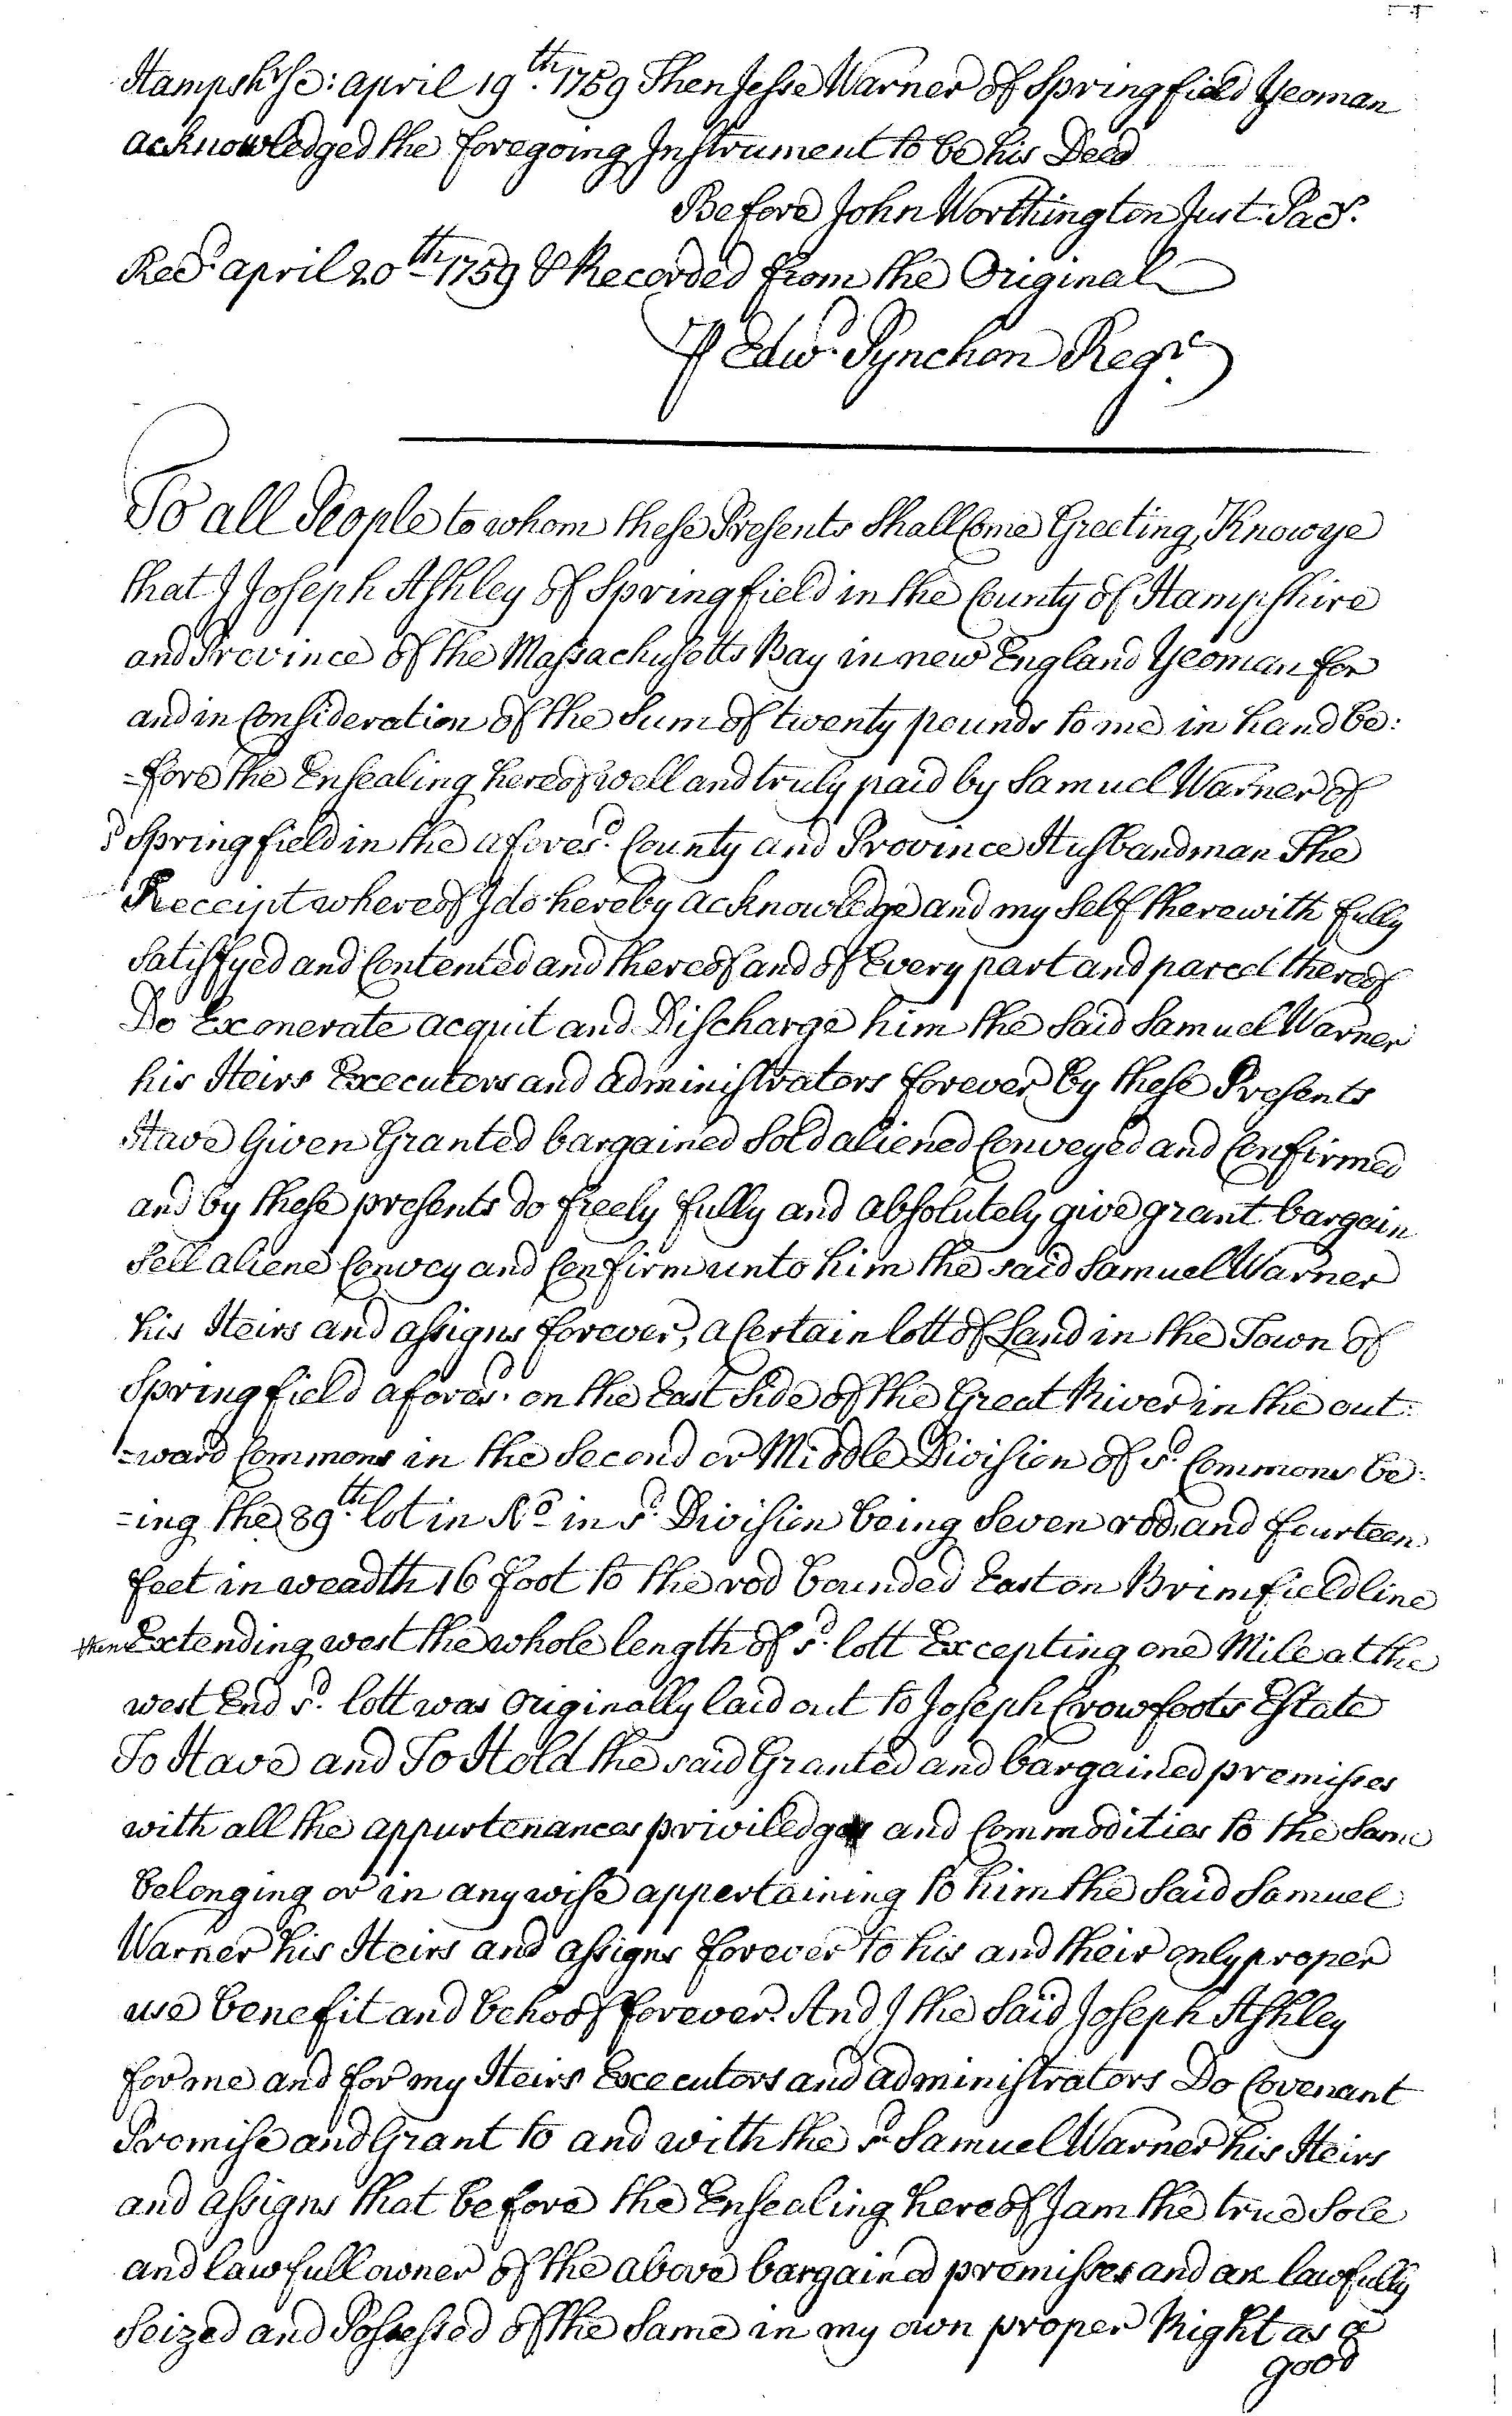 Hampshr Sc: april 19th. 1759 Then Jesse Warner of Springfield Yeoman
acknowledged the foregoing Instrument to be his Deed
Before John Worthington Just. Pacs.
Recd. april 20th 1759 & Recorded from the Original
P Edwd. Pynchon Regr.
To all People to whom these Presents Shall Come Greeting, Know ye
that I Joseph Ashley of Springfield in the County of Hampshire
and Province of the Massachusetts Bay in new England Yeoman for
and in Consideration of the Sum of twenty pounds to me in hand be:
=fore the Ensealing hereof well and truly paid by Samuel Warner of
sd Springfield in the aforesd. County and Province Husbandman The
Receipt whereof I do hereby acknowledge and my Self therewith fully
Satisfyed and Contented and thereof and of Every part and parcel thereof
Do Exonerate acquit and Discharge him the Said Samuel Warner
his Heirs Executors and administrators forever by these Presents
Have Given Granted bargained Sold aliened Conveyed and Confirmed
and by these presents do freely fully and absolutely give grant bargain
Sell aliene Convey and Confirm unto him the said Samuel Warner
his Heirs and assigns forever, a Certain lott of Land in the Town of
Springfield aforesd. on the East Side of the Great River in the out:
=ward Commons in the Second or Middle Division of sd. Commons be:
=ing the 89th. lot in No. in sd. Division being Seven rod and fourteen
feet in weadth 16 foot to the rod bounded East on Brimfield line
thence Extending west the whole length of sd. lott Excepting one Mile at the
west End sd. lott was Originally laid out to Joseph Crowfoots Estate
To Have and To Hold the said Granted and bargained premisses
with all the appurtenances priviledges and Commodities to the Same
belonging or in any wise appertaining to him the Said Samuel
Warner his Heirs and assigns forever to his and their only proper
use benefit and behoof forever. And I the Said Joseph Ashley
for me and for my Heirs Executors and administrators Do Covenant
Promise and Grant to and with the sd. Samuel Warner his Heirs
and assigns that before the Ensealing hereof I am the true Sole
and lawfull owner of the above bargained premisses and am lawfully
Seized and Possessed of the Same in my own proper Right as a
good